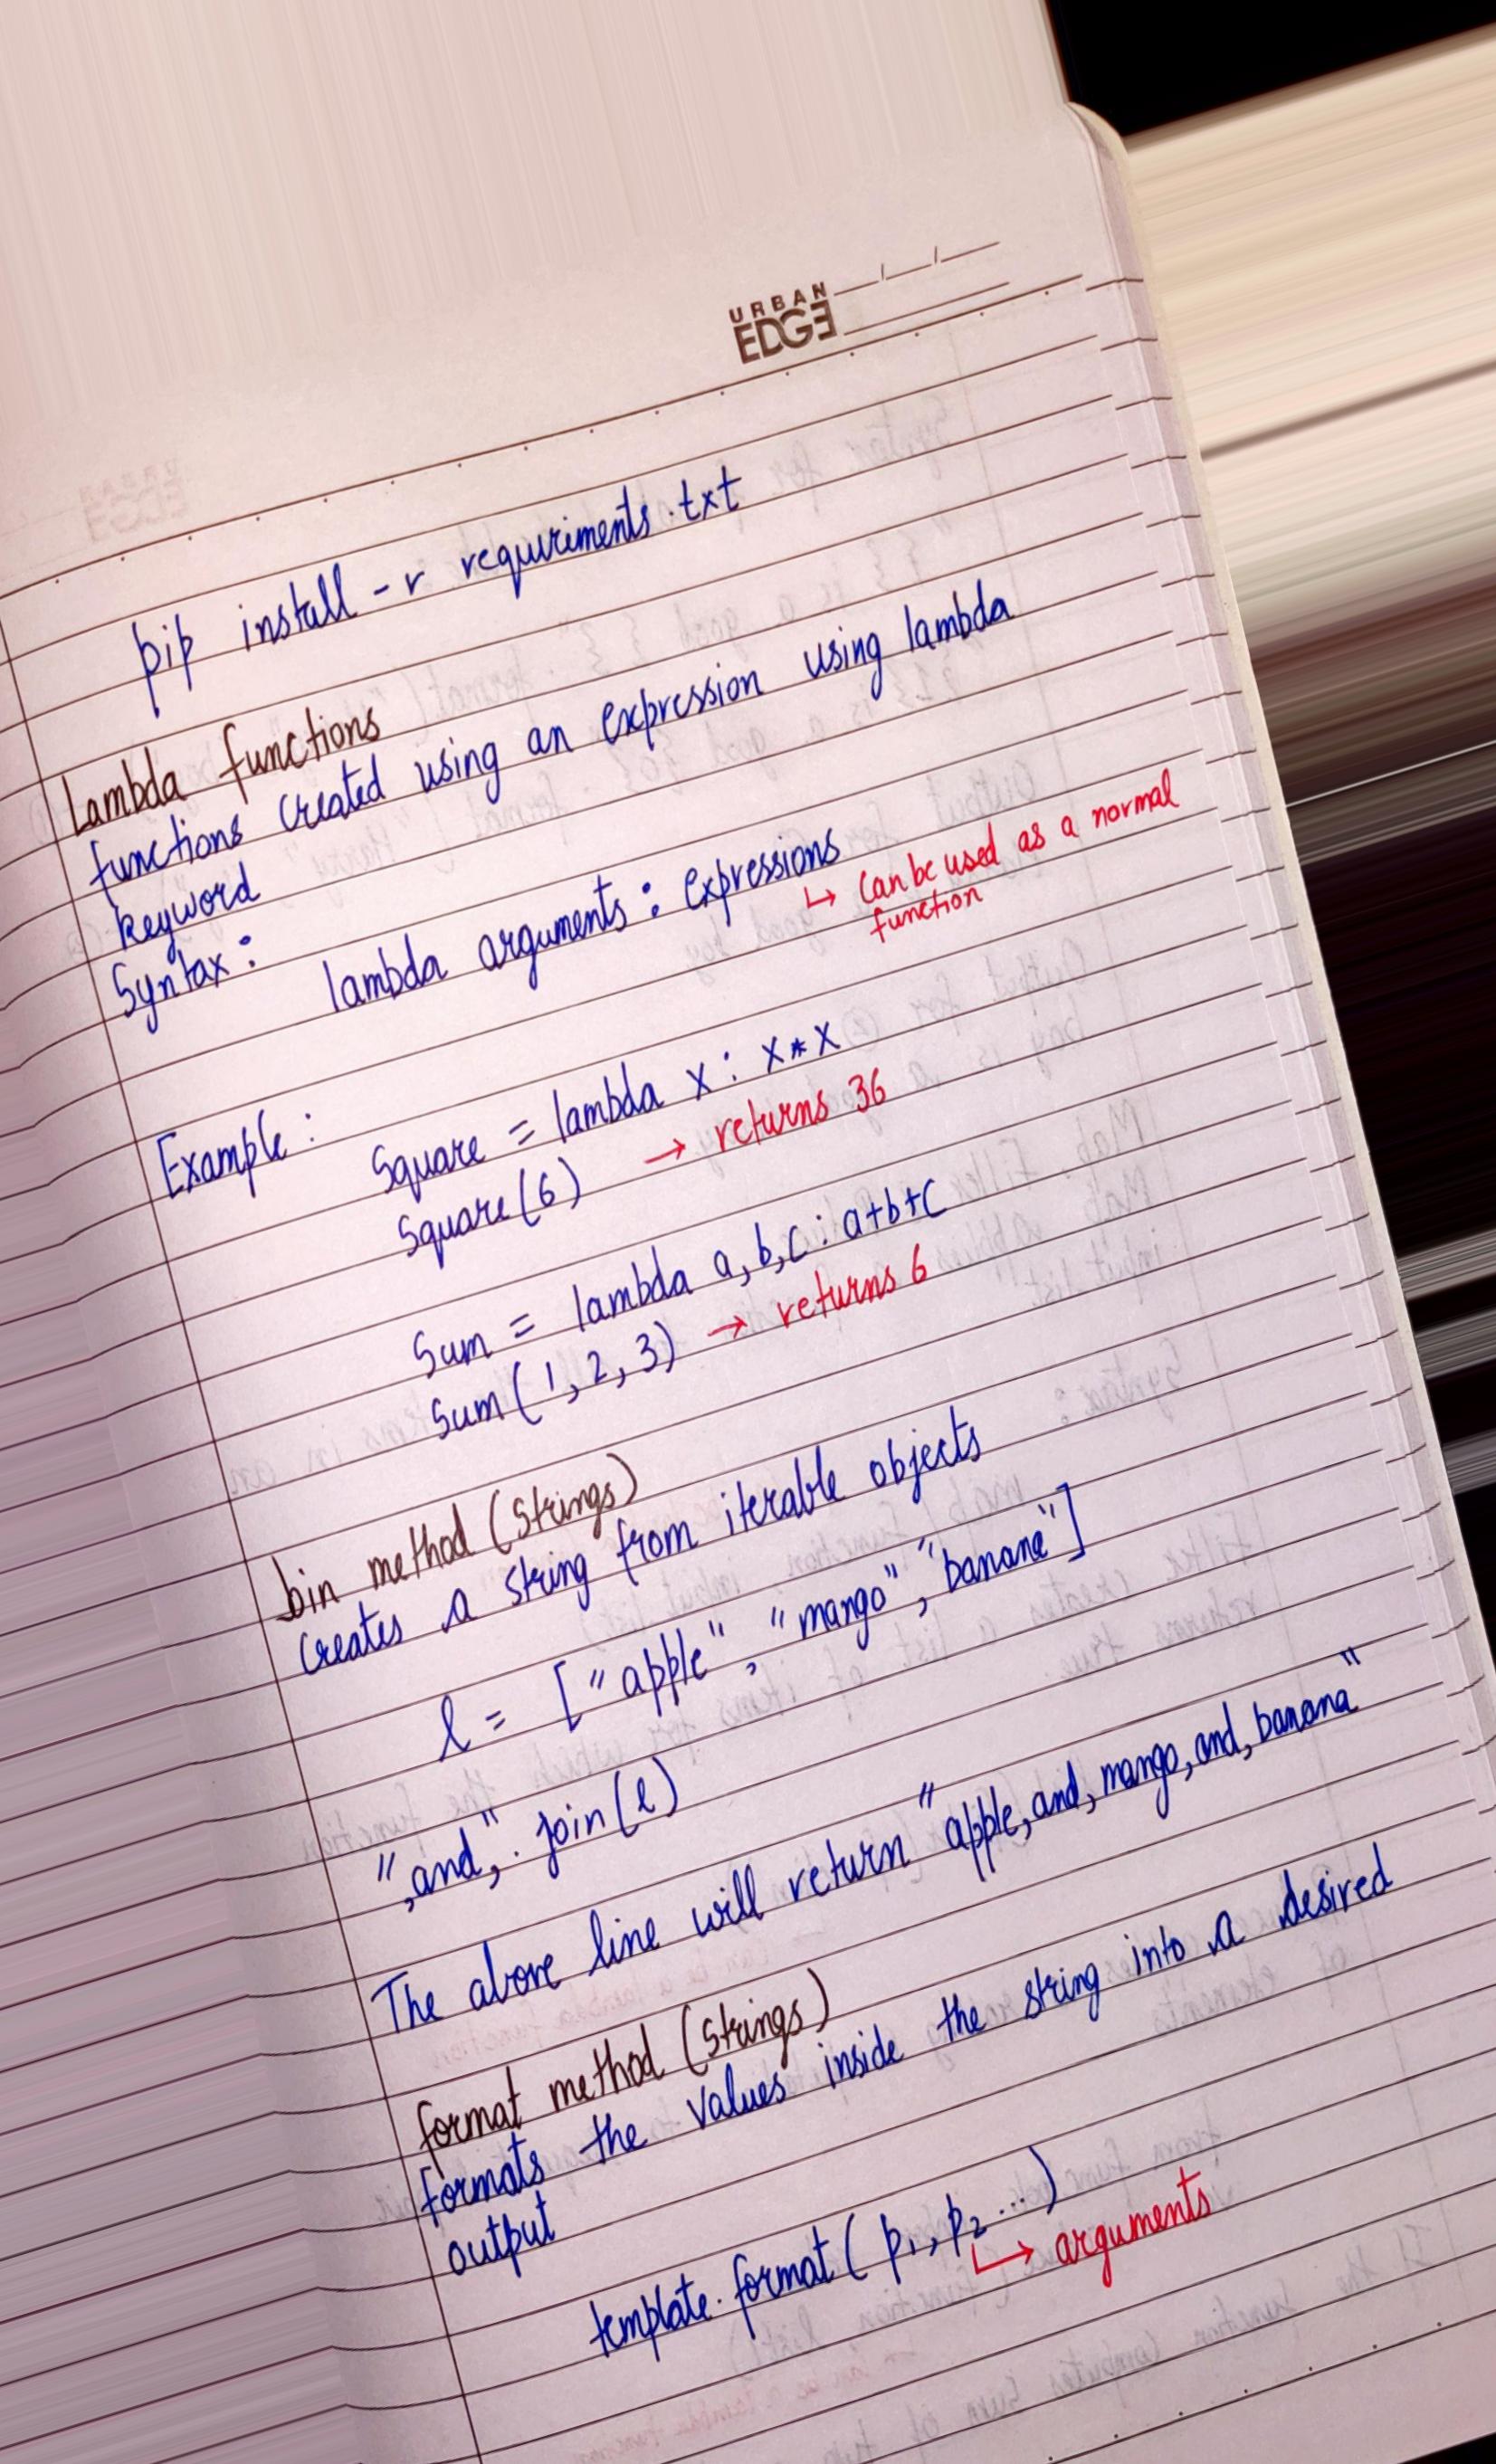 URBAN
EDGE
pip install -r requriments.txt
Lambda functions
functions created using an expression using lambda
keyword
Syntax:
lambda arguments : expressions
↳ Can be used as a normal
function
Example:
Square = lambda x : x*x
Square(6) → returns 36
Sum = lambda a, b, c : a+b+c
Sum(1, 2, 3) → returns 6
bin method (strings)
creates a string from iterable objects
l = ["apple", "mango", "banana"]
",and,". join(l)
The above line will return "apple,and,mango,and,banana"
format method (strings)
formats the values inside the string into a desired
output
template.format(p1, p2 ...)
↳ arguments